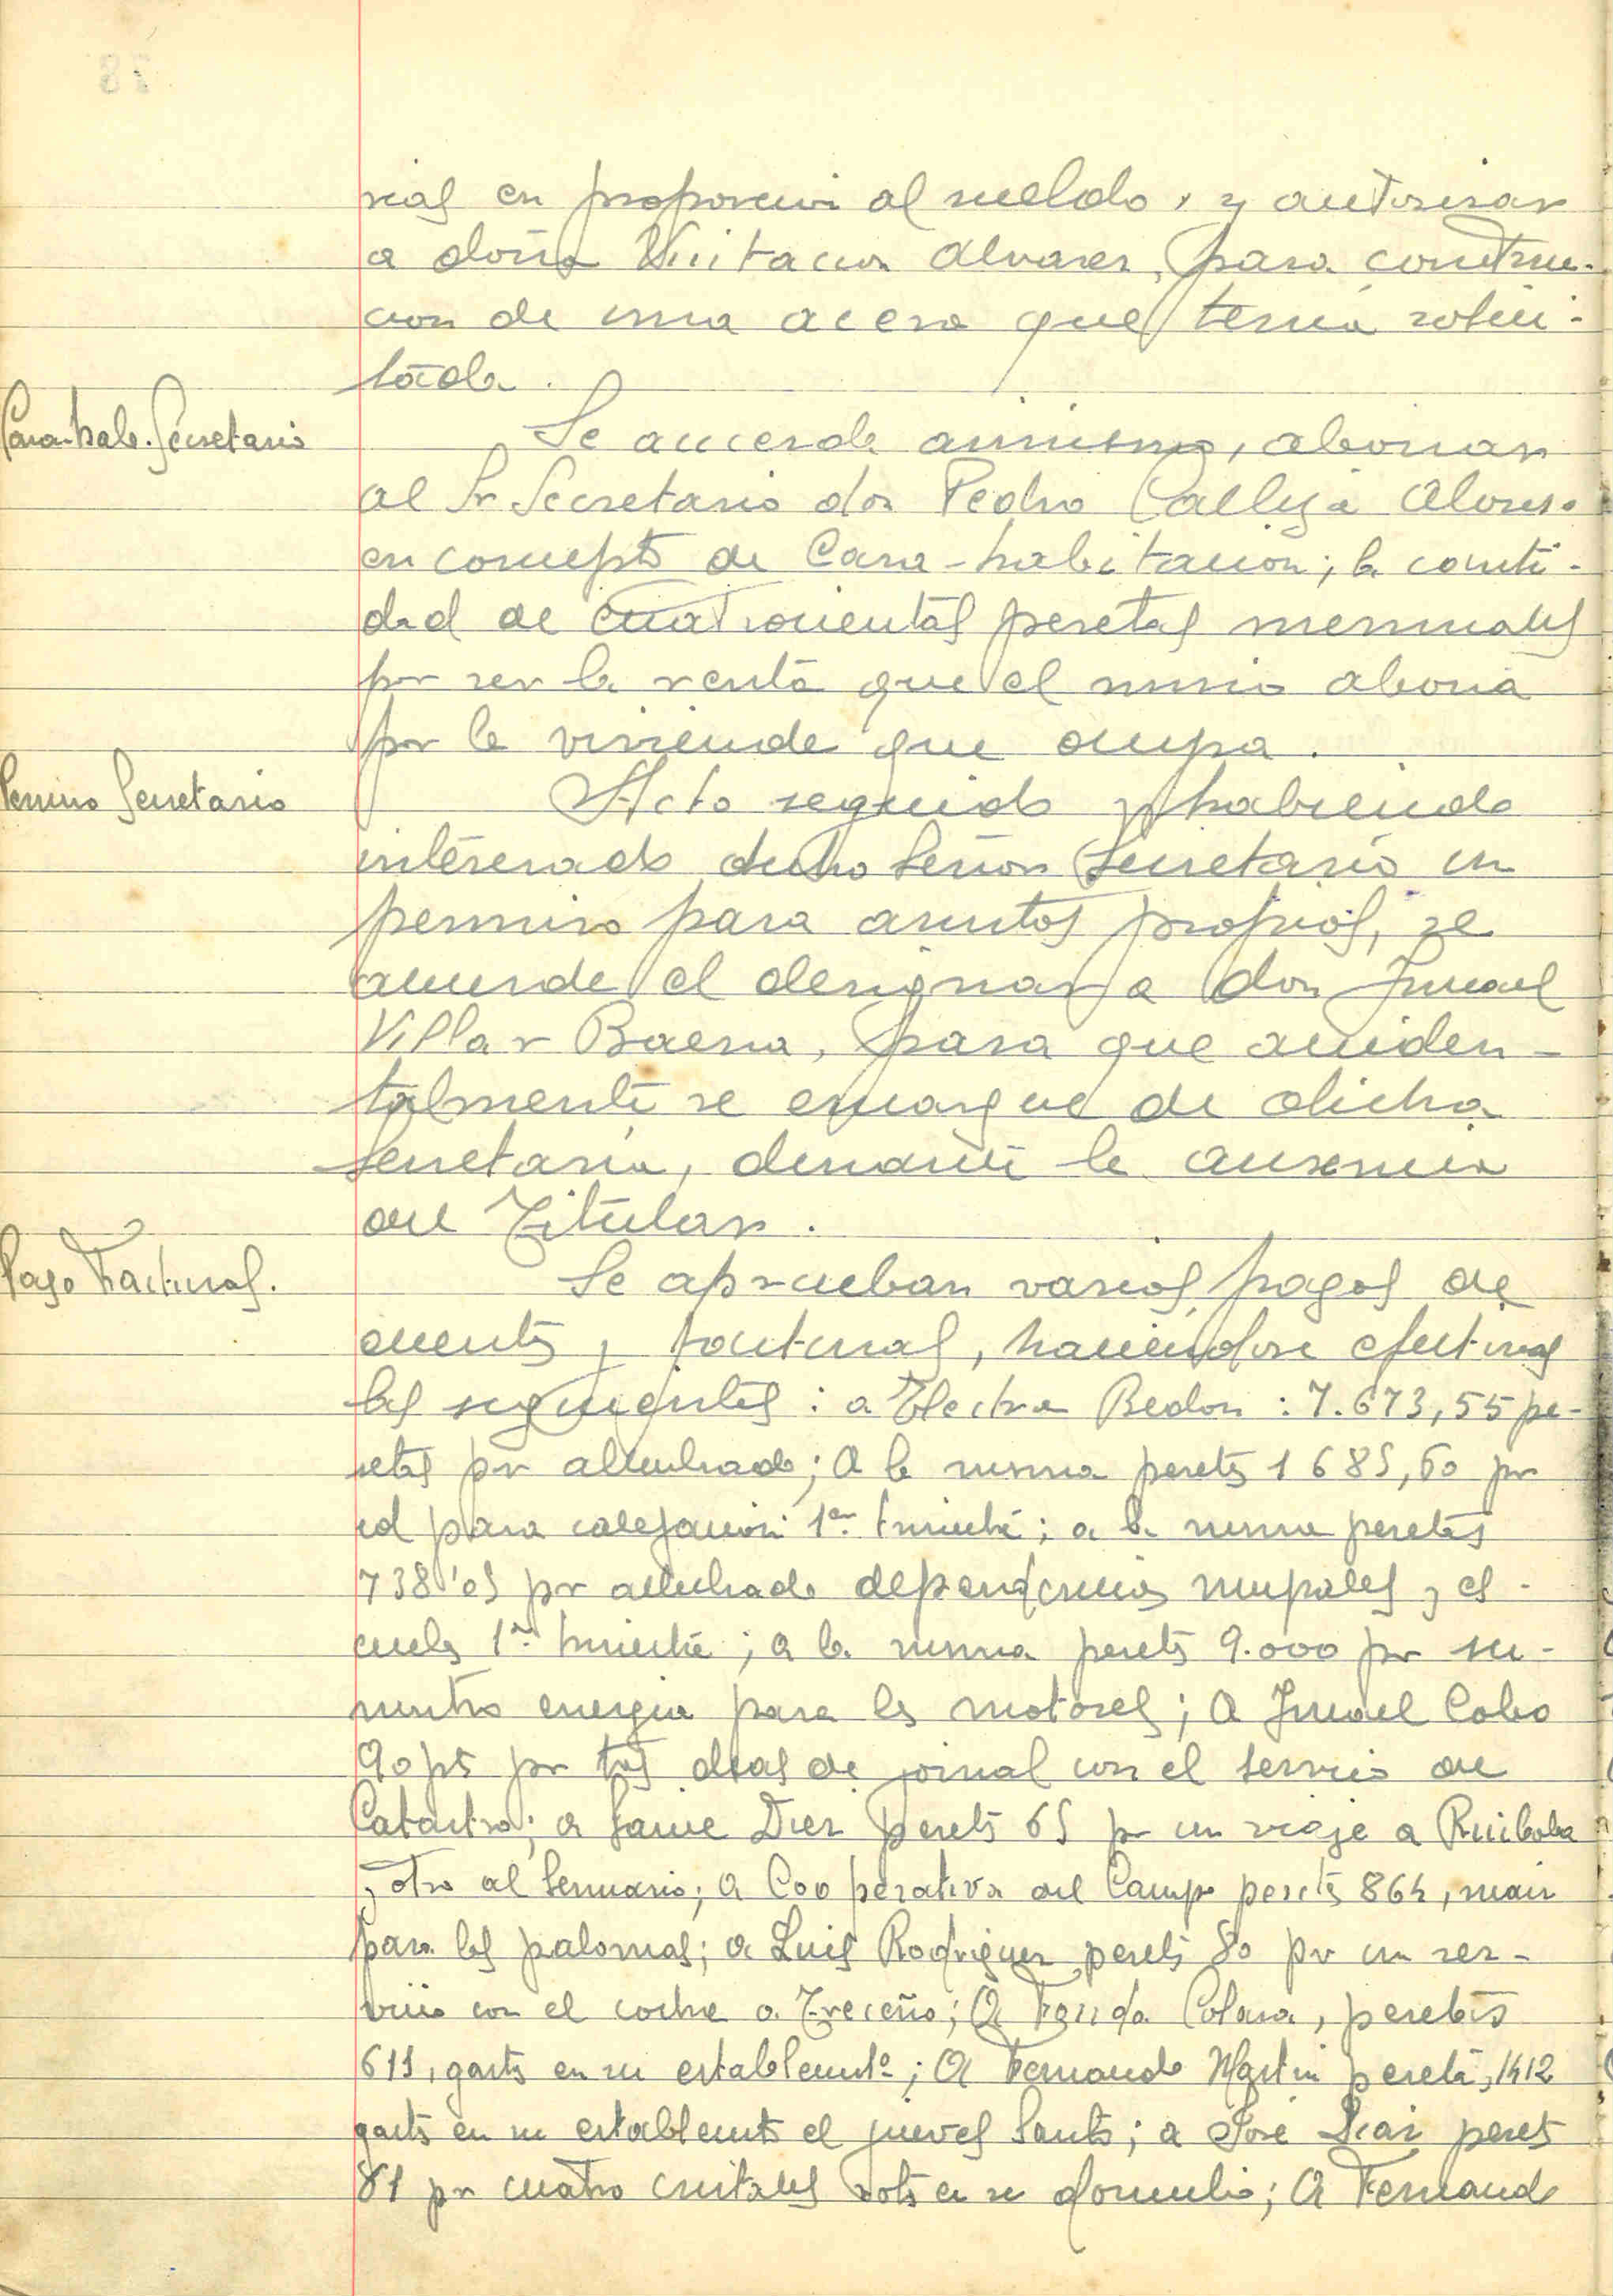 rias en proporcion al sueldo, y autorizar
a doña Visitacion Alvarez, para construc-
cion de una acera que tenia solici-
tada.
Casa-hab. Secretario
Se acuerda asimismo, abonar
al Sr Secretario don Pedro Calleja Alonso
en concepto de Casa-habitacion; la canti-
dad de cuatrocientas pesetas mensuales
por ser la renta que el mismo abona
por la vivienda que ocupa.
Permiso Secretario
Acto seguido y habiendo
interesado dicho Señor Secretario un
permiso para asuntos propios, se
acuerda el designar a don Ismael
Villar Baena, para que acciden-
talmente se encargue de dicha
Secretaría, durante la ausencia
del Titular.
Pago Facturas.
Se aprueban varios pagos de
cuentas y facturas, haciendose efectivas
las siguientes: a Electra Bedon: 7.673,55 pe-
setas por alumbrado; A la misma pesetas 1685,60 por
id para calefaccion 1er. trimestre; a la misma pesetas
738'05 por alumbrado dependencias mupales y es-
cuelas 1er. trimestre; a la misma pesetas 9.000 por su-
ministro energia para los motores; A Ismael Cobo
90 pts por tres dias de jornal con el servicio de
Catastro; a Jaime Diez pesetas 65 por un viaje a Ruiloba
y otro al Seminario; A Cooperativa del Campo pesetas 864, maiz
para las palomas; a Luis Rodriguez pesetas 80 por un ser-
vicio con el coche a Treceño; A Fonda Colasa, pesetas
611, gastos en su establecimtº; A Fernando Martin pesetas, 1412
gastos en su establecimto el jueves Santo; a José Diaz pesetas
81 por cuatro cristales rotos en su domicilio; A Fernando